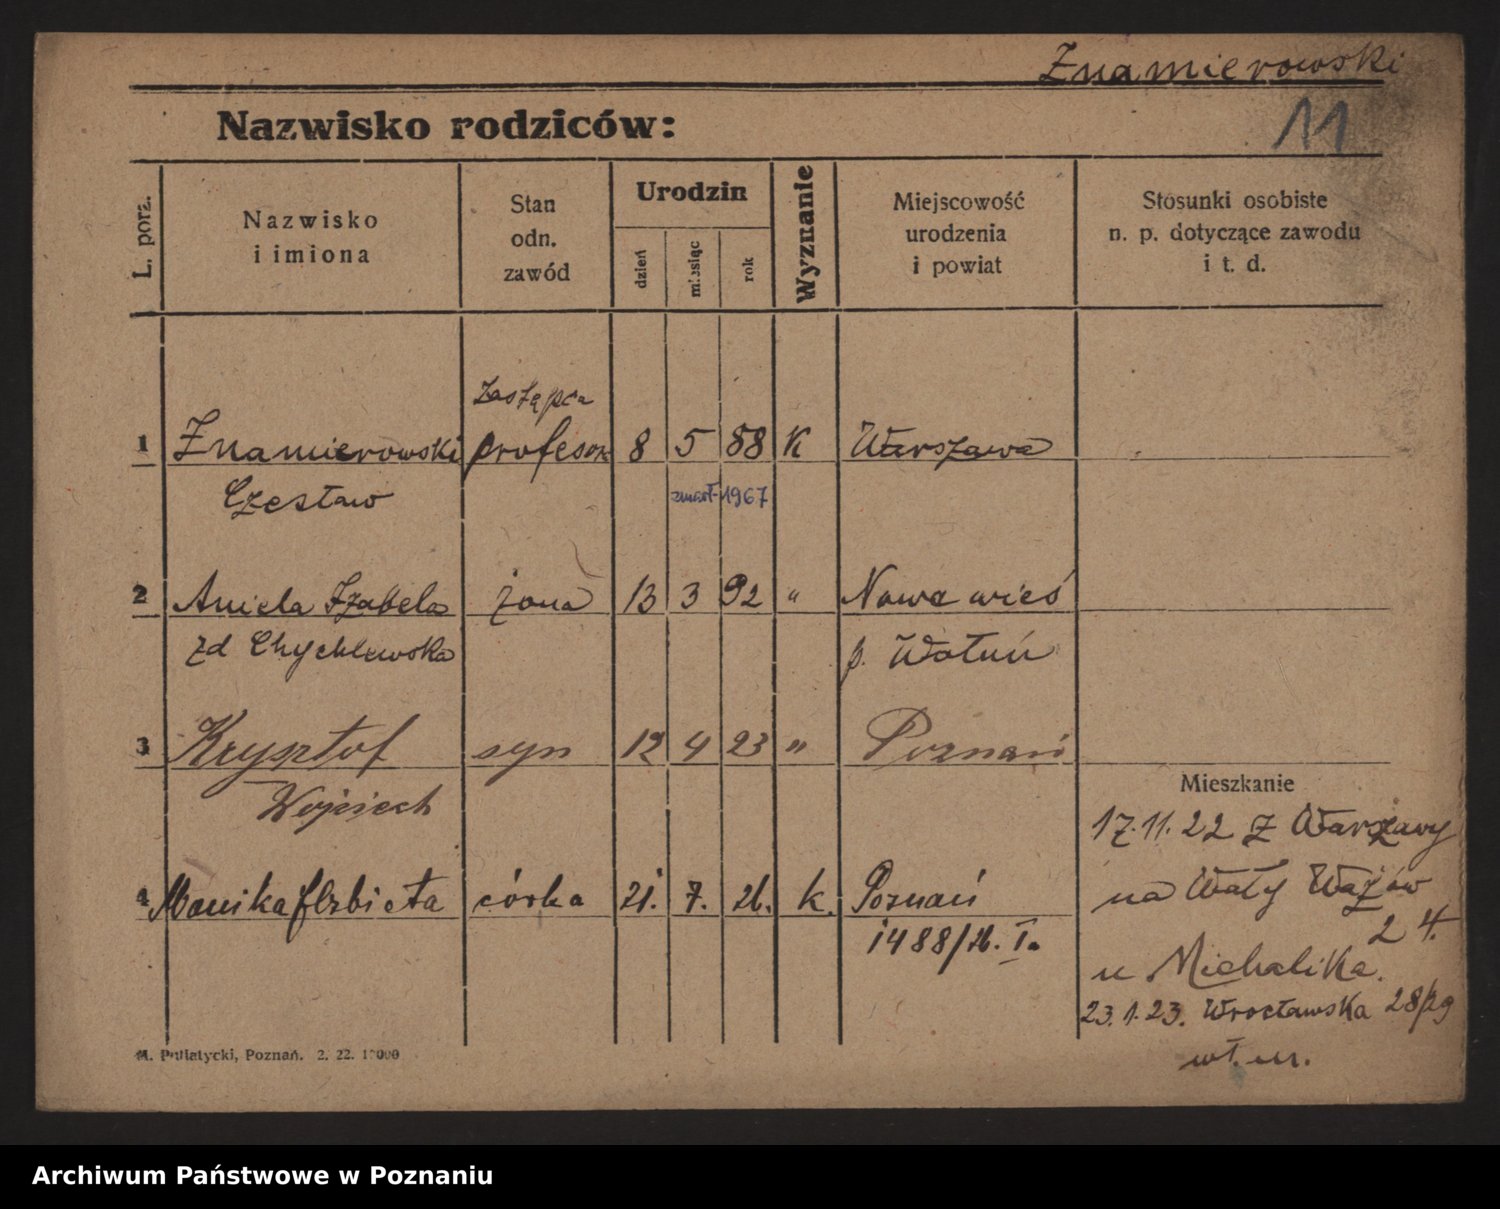 Znamierowski
11
Nazwisko rodziców:
L. porz.
Nazwisko
i imiona
Stan
odn.
zawód
Urodzin
dzień
miesiąc
rok
Wyznanie
Miejscowość
urodzenia
i powiat
Stosunki osobiste
n. p. dotyczące zawodu
i t. d.
zastępca
1 Znamierowski profesora 8 5 88 K Warszawa
Czesław zmarł 1967
2 Aniela Izabela żona 13 3 92 " Nowa wieś
zd Chychlewska p. Wołuń
3 Krysztof syn 12 4 23 " Poznań
Wojciech
Mieszkanie
17.11.22 z Warszawy
4 Monika Elzbieta córka 21. 7. 26. k. Poznań
na Wały Wazów
24.
1488/26. I.
u Michalika.
23.1.23. Wrocławska 28/29
wł. m.
M. Putiatycki, Poznań. 2. 22. 10000
Archiwum Państwowe w Poznaniu